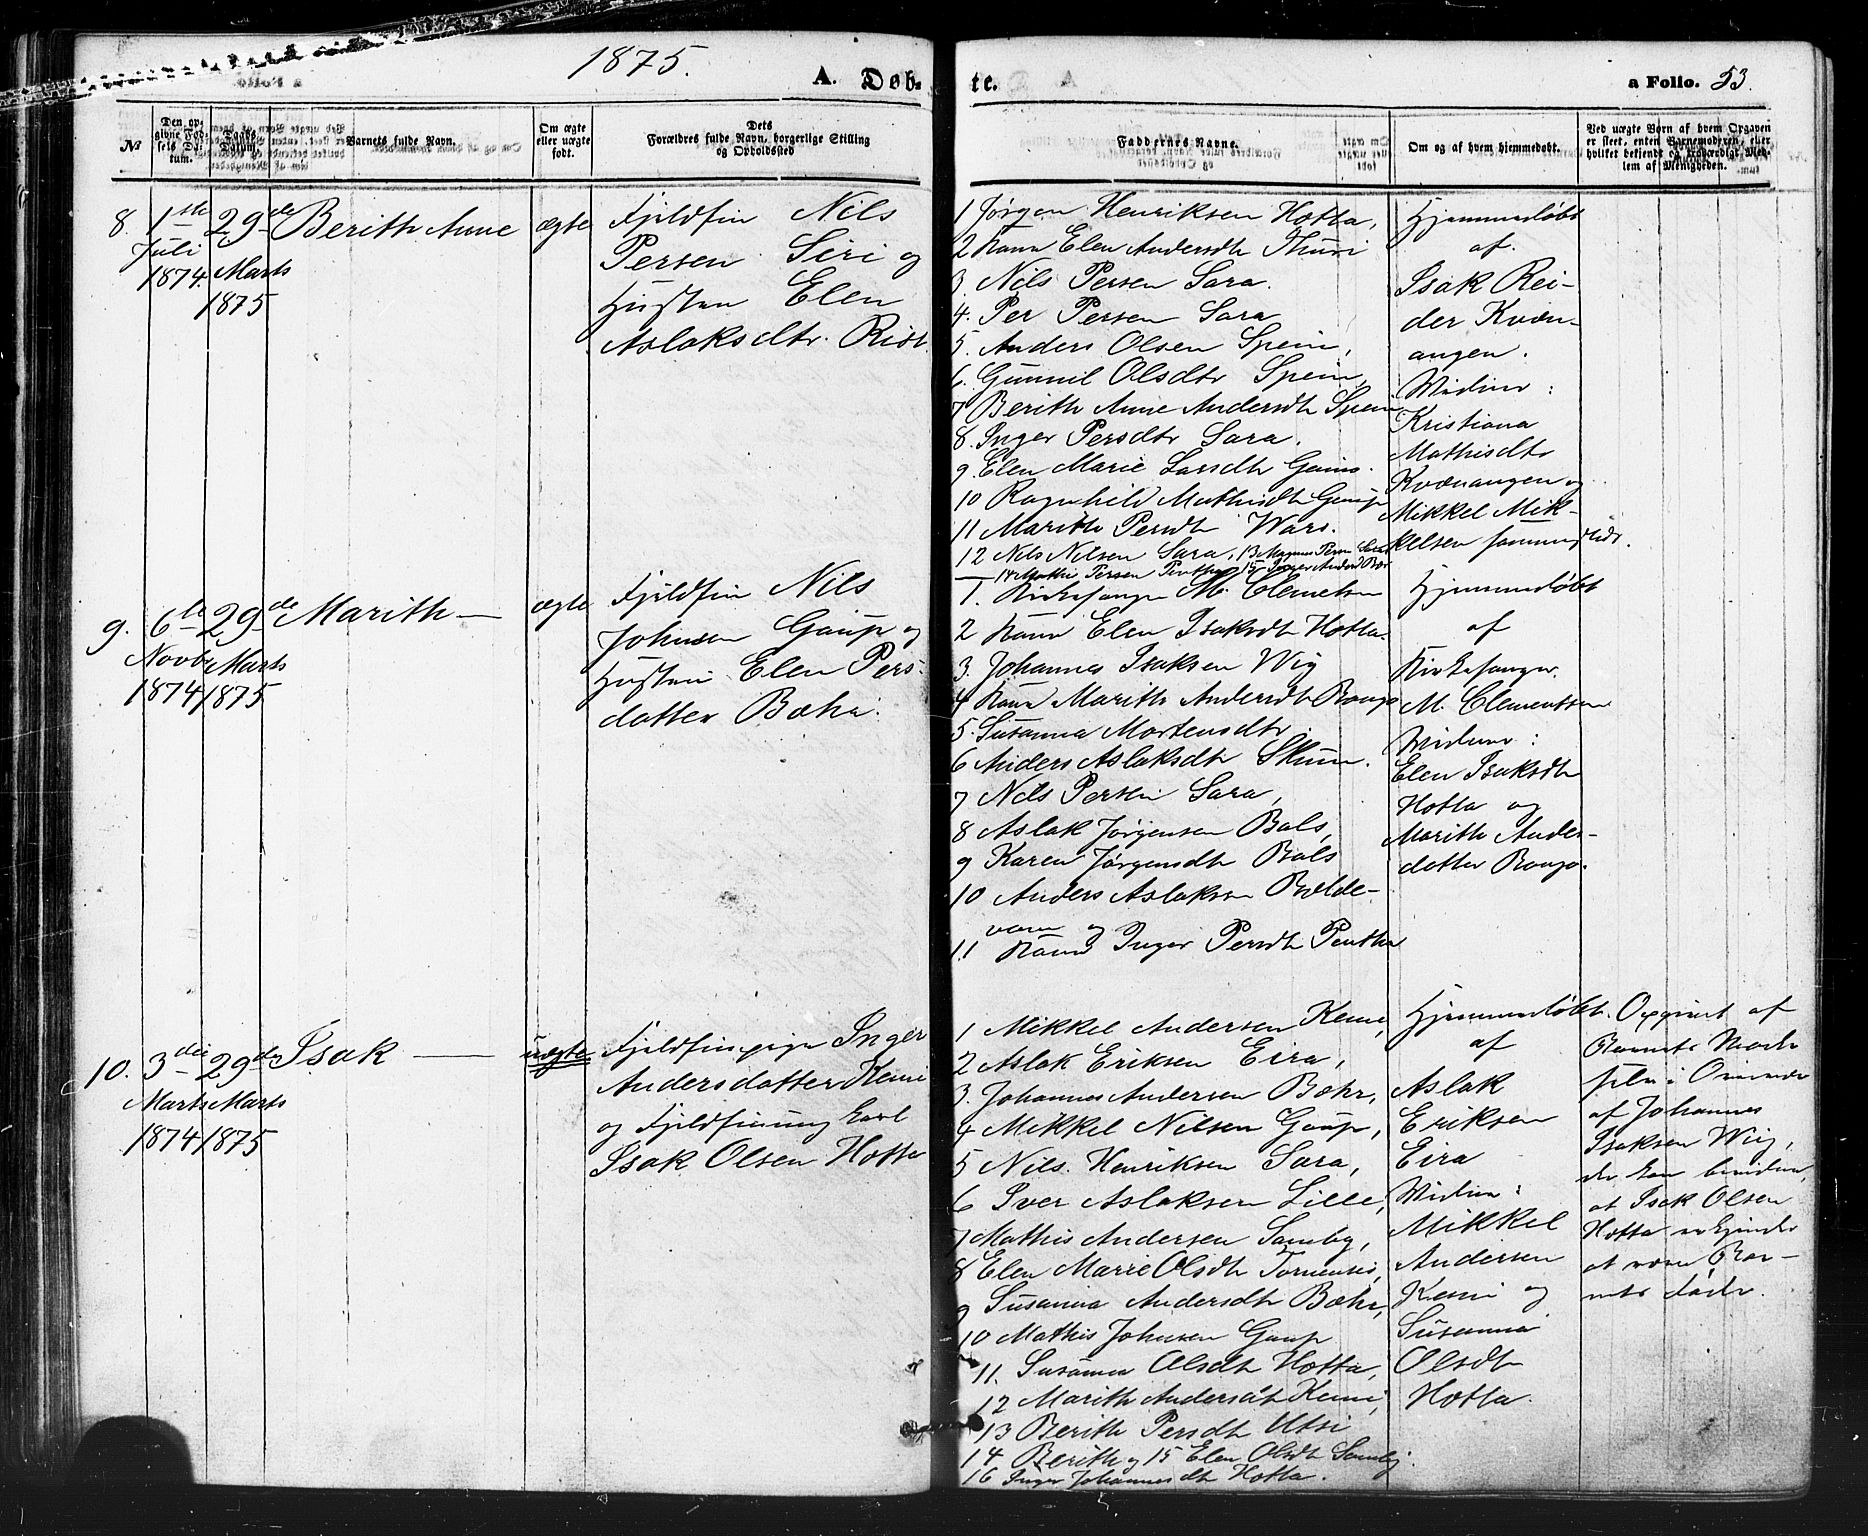 1875.
A. Døb-
te.
a Folio. 53.
№
Den op-
givne Fød-
sels Da-
tum.
Daabs
Datum.
Barnets fulde Navn.
Om ægte
eller uægte
født.
Dets
Forældres fulde Navn, borgerlige Stilling
og Opholdssted
Faddernes Navne.
Om og af hvem hjemmedøbt.
Ved uægte Børn af hvem Opgaven
er skeet, enten Barnemoderen, eller
hvilket bekjendt og troværdigt Med-
lem af Menigheden.
8.
1ste
Juli
1874.
29de
Marts
1875
Berith Anne
ægte
Fjeldfin Nils
Persen Siri og
Hustru Elen
Aslaksdtr. Rist.
1 Jørgen Henriksen Hotta,
2 Kone Elen Andersdt Thuri
3 Nils Persen Sara.
4. Per Persen Sara
5. Anders Olsen Spein,
6. Gunnil Olsdtr Spein,
7 Berith Anne Andersdt Spein
8. Inger Persdtr Sara.
9. Elen Marie Larsdt Gaino.
10 Ragnhild Mathisdt Gaup
11 Marith Persdt Wars.
12 Nils Nilsen Sara, 13 Magnus Persen Sara
14 Mathis Persen Pentha 15 Inger Andersd Bær
Hjemmedøbt
af
Isak Rei-
der Kvæn-
angen.
Vidner:
Kristiana
Mathisdtr
Kvænangen og
Mikkel Mik-
kelsen sammesteds.
9.
6te
Novbr
1874
29de
Marts
1875
Marith —
ægte
Fjeldfin Nils
Johnsen Gaup og
Hustru Elen Pers-
datter Bæhr.
1. Kirkesanger M. Clemetsen
2 Kone Elen Isaksdt Hotta.
3. Johannes Isaksen Wig
4 Kone Marith Andersdt Bongo
5. Susanna Mortensdtr
6 Anders Aslaksdt Skum.
7 Nils Persen Sara,
8 Aslak Jørgensen Bals,
9 Karen Jørgensdt Bals
10 Anders Aslaksen Bælde-
vare og
11 Kone Inger Persdt Pentha
Hjemmedøbt
af
Kirkesanger
M. Clementsen
Vidner:
Elen Isaksdt
Hotta og
Marith Anders-
datter Bongo.
10.
3die
Marts
1874
29de
Marts
1875
Isak —
uægte
Fjeldfinpige Inger
Andersdatter Kemi
og Fjeldfinungkarl
Isak Olsen Hotta
1 Mikkel Andersen Kemi,
2 Aslak Eriksen Eira,
3. Johannes Andersen Bæhr,
4 Mikkel Nilsen Gaup,
5 Nils Henriksen Sara,
6 Iver Aslaksen Lille,
7 Mathis Andersen Somby,
8 Elen Marie Olsdt Tornensis,
9 Susanna Andersdt Bæhr,
10 Mathis Johnsen Gaup
11. Susanna Olsdt Hotta,
12 Marith Andersdt Kemi,
13 Berith Persdt Utsi
14 Berith og 15 Elen Olsdt Somby.
16 Inger Johannesdt Hotta.
Hjemmedøbt
af
Aslak
Eriksen
Eira
Vidner:
Mikkel
Andersen
Kemi og
Susanna
Olsdt
Hotta.
Opgivet af
Barnets Moder
selv i Overvær
af Johannes
Isaksen Wig,
der kan bevidne,
at Isak Olsen
Hotta erkjender
at være Bar-
nets Fader.